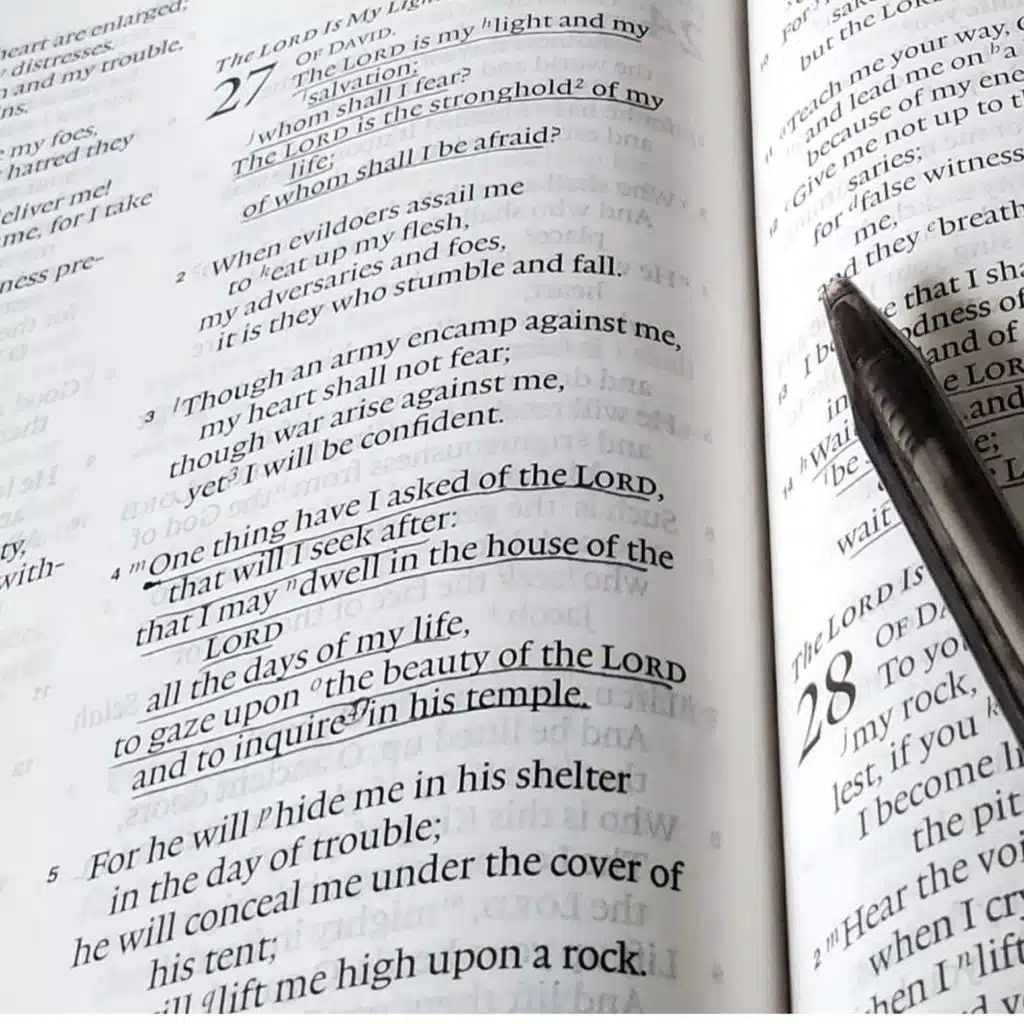 heart are enlarged;
distresses.
and my trouble,
my foes,
hatred they
deliver me!
me, for I take
ness pre-
ty,
with-
The LORD Is My Light
27 OF DAVID.
The LORD is my h light and my
i salvation;
j whom shall I fear?
The LORD is the stronghold2 of my
life;
of whom shall I be afraid?
2 When evildoers assail me
to k eat up my flesh,
my adversaries and foes,
it is they who stumble and fall.
3 l Though an army encamp against me,
my heart shall not fear;
though war arise against me,
yet3 I will be confident.
4 m One thing have I asked of the LORD,
that will I seek after:
that I may n dwell in the house of the
LORD
all the days of my life,
to gaze upon o the beauty of the LORD
and to inquire in his temple.
5 For he will p hide me in his shelter
in the day of trouble;
he will conceal me under the cover of
his tent;
q lift me high upon a rock.
but the LORD
Teach me your way,
and lead me on b a
because of my ene
Give me not up to th
saries;
for d false witness
me,
and they e breath
that I sha
odness of
land of
in
h Wait
LOR
and
i be
wait
The LORD Is
28 OF DA
To you
j my rock,
lest, if you k
I become li
the pit
2 m Hear the voi
when I cry
when I n lift